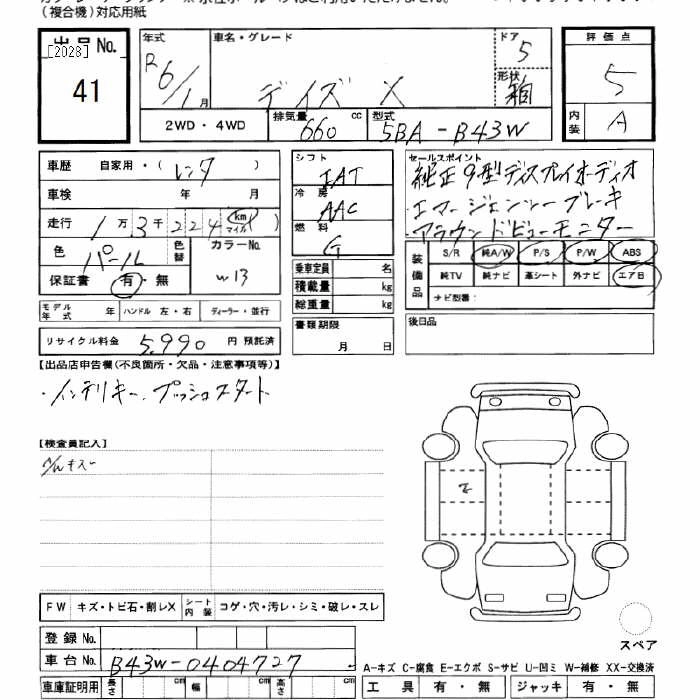 (複合機)対応用紙
出品No.
[2028]
41
年式
R6/1月
車名・グレード
デイズ X
ドア
5
形状
箱
2WD・4WD
排気量
660 cc
型式
5BA-B43W
評価点
5
内装
A
車歴 自家用・(レンタ)
車検 年 月
走行 1万3千224 km マイル( )
色 パール
色替
カラーNo.
W13
保証書 有・無
モデル年式 年 ハンドル 左・右 ディーラー・並行
リサイクル料金 5,990 円 預託済
シフト
IAT
冷房
AAC
燃料
G
乗車定員 名
積載量 kg
総重量 kg
書類期限
月 日
セールスポイント
純正9型ディスプレイオーディオ
・エマージェンシーブレーキ
・アラウンドビューモニター
装備品
S/R 純A/W P/S P/W ABS
純TV 純ナビ 革シート 外ナビ エアB
ナビ型番:
後日品
【出品店申告欄(不良箇所・欠品・注意事項等)】
・インテリキー、プッシュスタート
【検査員記入】
FW キズ・トビ石・割レX シート内装 コゲ・穴・汚レ・シミ・破レ・スレ
登録No.
車台No. B43W-0404727
車庫証明用 長さ cm 幅 cm 高さ cm
スペア
A-キズ C-腐食 E-エクボ S-サビ U-凹ミ W-補修 XX-交換済
工具 有・無 ジャッキ 有・無